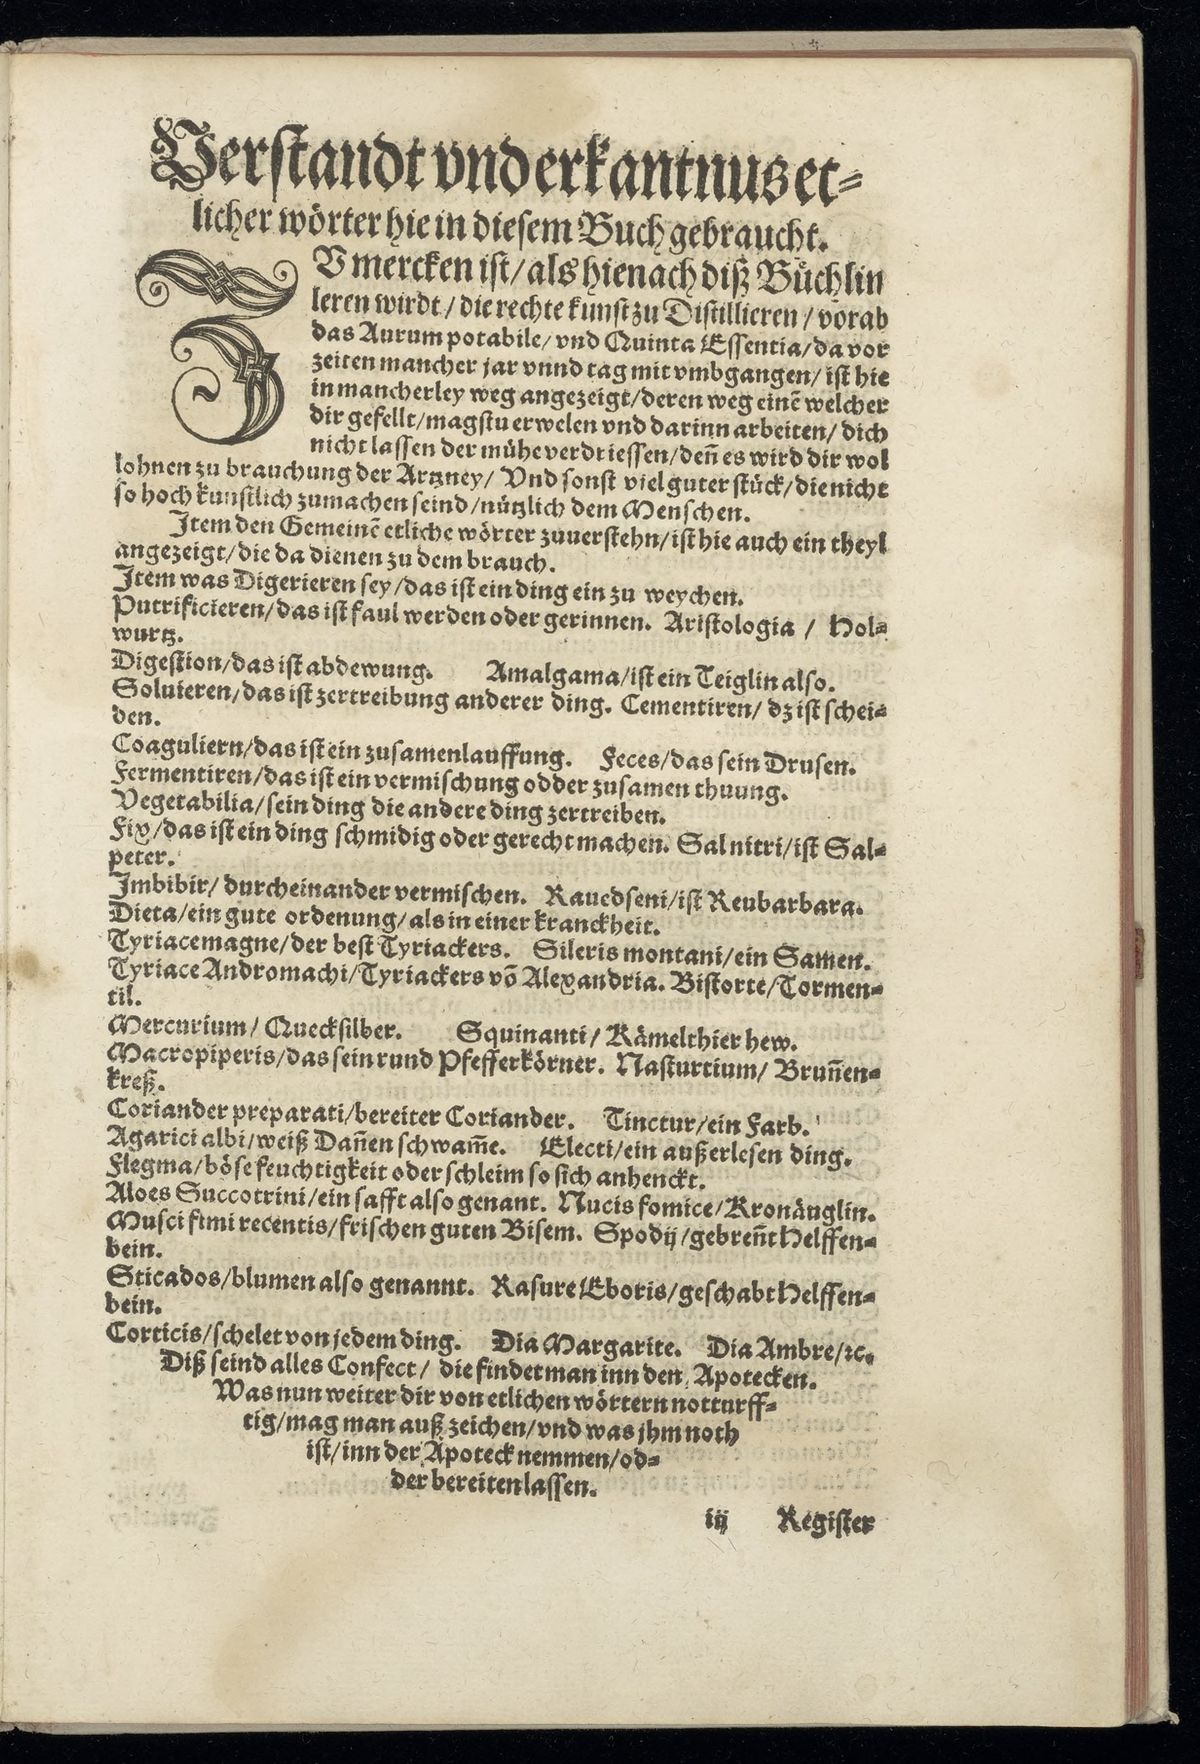 Verstandt vnd erkantnus et⸗
licher wörter hie in diesem Buch gebraucht.
ZV mercken ist/ als hienach diß Büchlin
leren wirdt/ die rechte kunst zu Distillieren/ vorab
das Aurum potabile/ vnd Quinta Essentia/ da vor
zeiten mancher jar vnnd tag mit vmbgangen/ ist hie
in mancherley weg angezeigt/ deren weg einẽ welcher
dir gefellt/ magstu erwelen vnd darinn arbeiten/ dich
nicht lassen der mühe verdriessen/ deñ es wird dir wol
lohnen zu brauchung der Artzney/ Vnd sonst viel guter stück/ die nicht
so hoch kunstlich zumachen seind/ nützlich dem Menschen.
Item den Gemeinẽ etliche wörter zuuerstehn/ ist hie auch ein theyl
angezeigt/ die da dienen zu dem brauch.
Item was Digerieren sey/ das ist ein ding ein zu weychen.
Putrificieren/ das ist faul werden oder gerinnen. Aristologia / Hol⸗
wurtz.
Digestion/ das ist abdewung. Amalgama/ ist ein Teiglin also.
Soluieren/ das ist zertreibung anderer ding. Cementiren/ dz ist schei⸗
den.
Coaguliern/ das ist ein zusamenlauffung. Feces/ das sein Drusen.
Fermentiren/ das ist ein vermischung odder zusamen thuung.
Vegetabilia/ sein ding die andere ding zertreiben.
Fix/ das ist ein ding schmidig oder gerecht machen. Sal nitri/ ist Sal⸗
peter.
Imbibir/ durcheinander vermischen. Rauedseni/ ist Reubarbara.
Dieta/ ein gute ordenung/ als in einer kranckheit.
Tyriacemagne/ der best Tyriackers. Sileris montani/ ein Samen.
Tyriace Andromachi/ Tyriackers võ Alexandria. Bistorte/ Tormen⸗
til.
Mercurium/ Quecksilber. Squinanti/ Kämelthier hew.
Macropiperis/ das sein rund Pfefferkörner. Nasturtium/ Bruñen⸗
kreß.
Coriander preparati/ bereiter Coriander. Tinctur/ ein Farb.
Agarici albi/ weiß Dañen schwam̃e. Electi/ ein außerlesen ding.
Flegma/ böse feuchtigkeit oder schleim so sich anhenckt.
Aloes Succotrini/ ein safft also genant. Nucis fomice/ Kronäuglin.
Musci fimi recentis/ frischen guten Bisem. Spodij/ gebreñt Helffen⸗
bein.
Sticados/ blumen also genannt. Rasure Eboris/ geschabt Helffen⸗
bein.
Corticis/ schelet von jedem ding. Dia Margarite. Dia Ambre/ ꝛc.
Diß seind alles Confect/ die findet man inn den Apotecken.
Was nun weiter dir von etlichen wörtern notturff⸗
tig/ mag man auß zeichen/ vnd was jhm noth
ist/ inn der Apoteck nemmen/ od⸗
der bereiten lassen.
iij Register